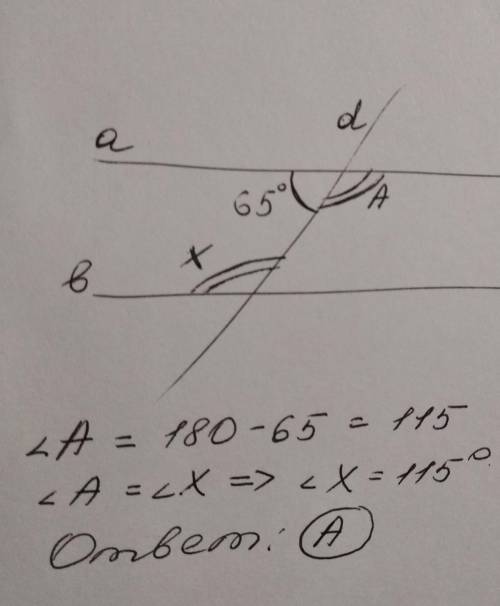 d
a
65° A
x
в
∠A = 180-65 = 115
∠A = ∠X => ∠X = 115°
Ответ: A